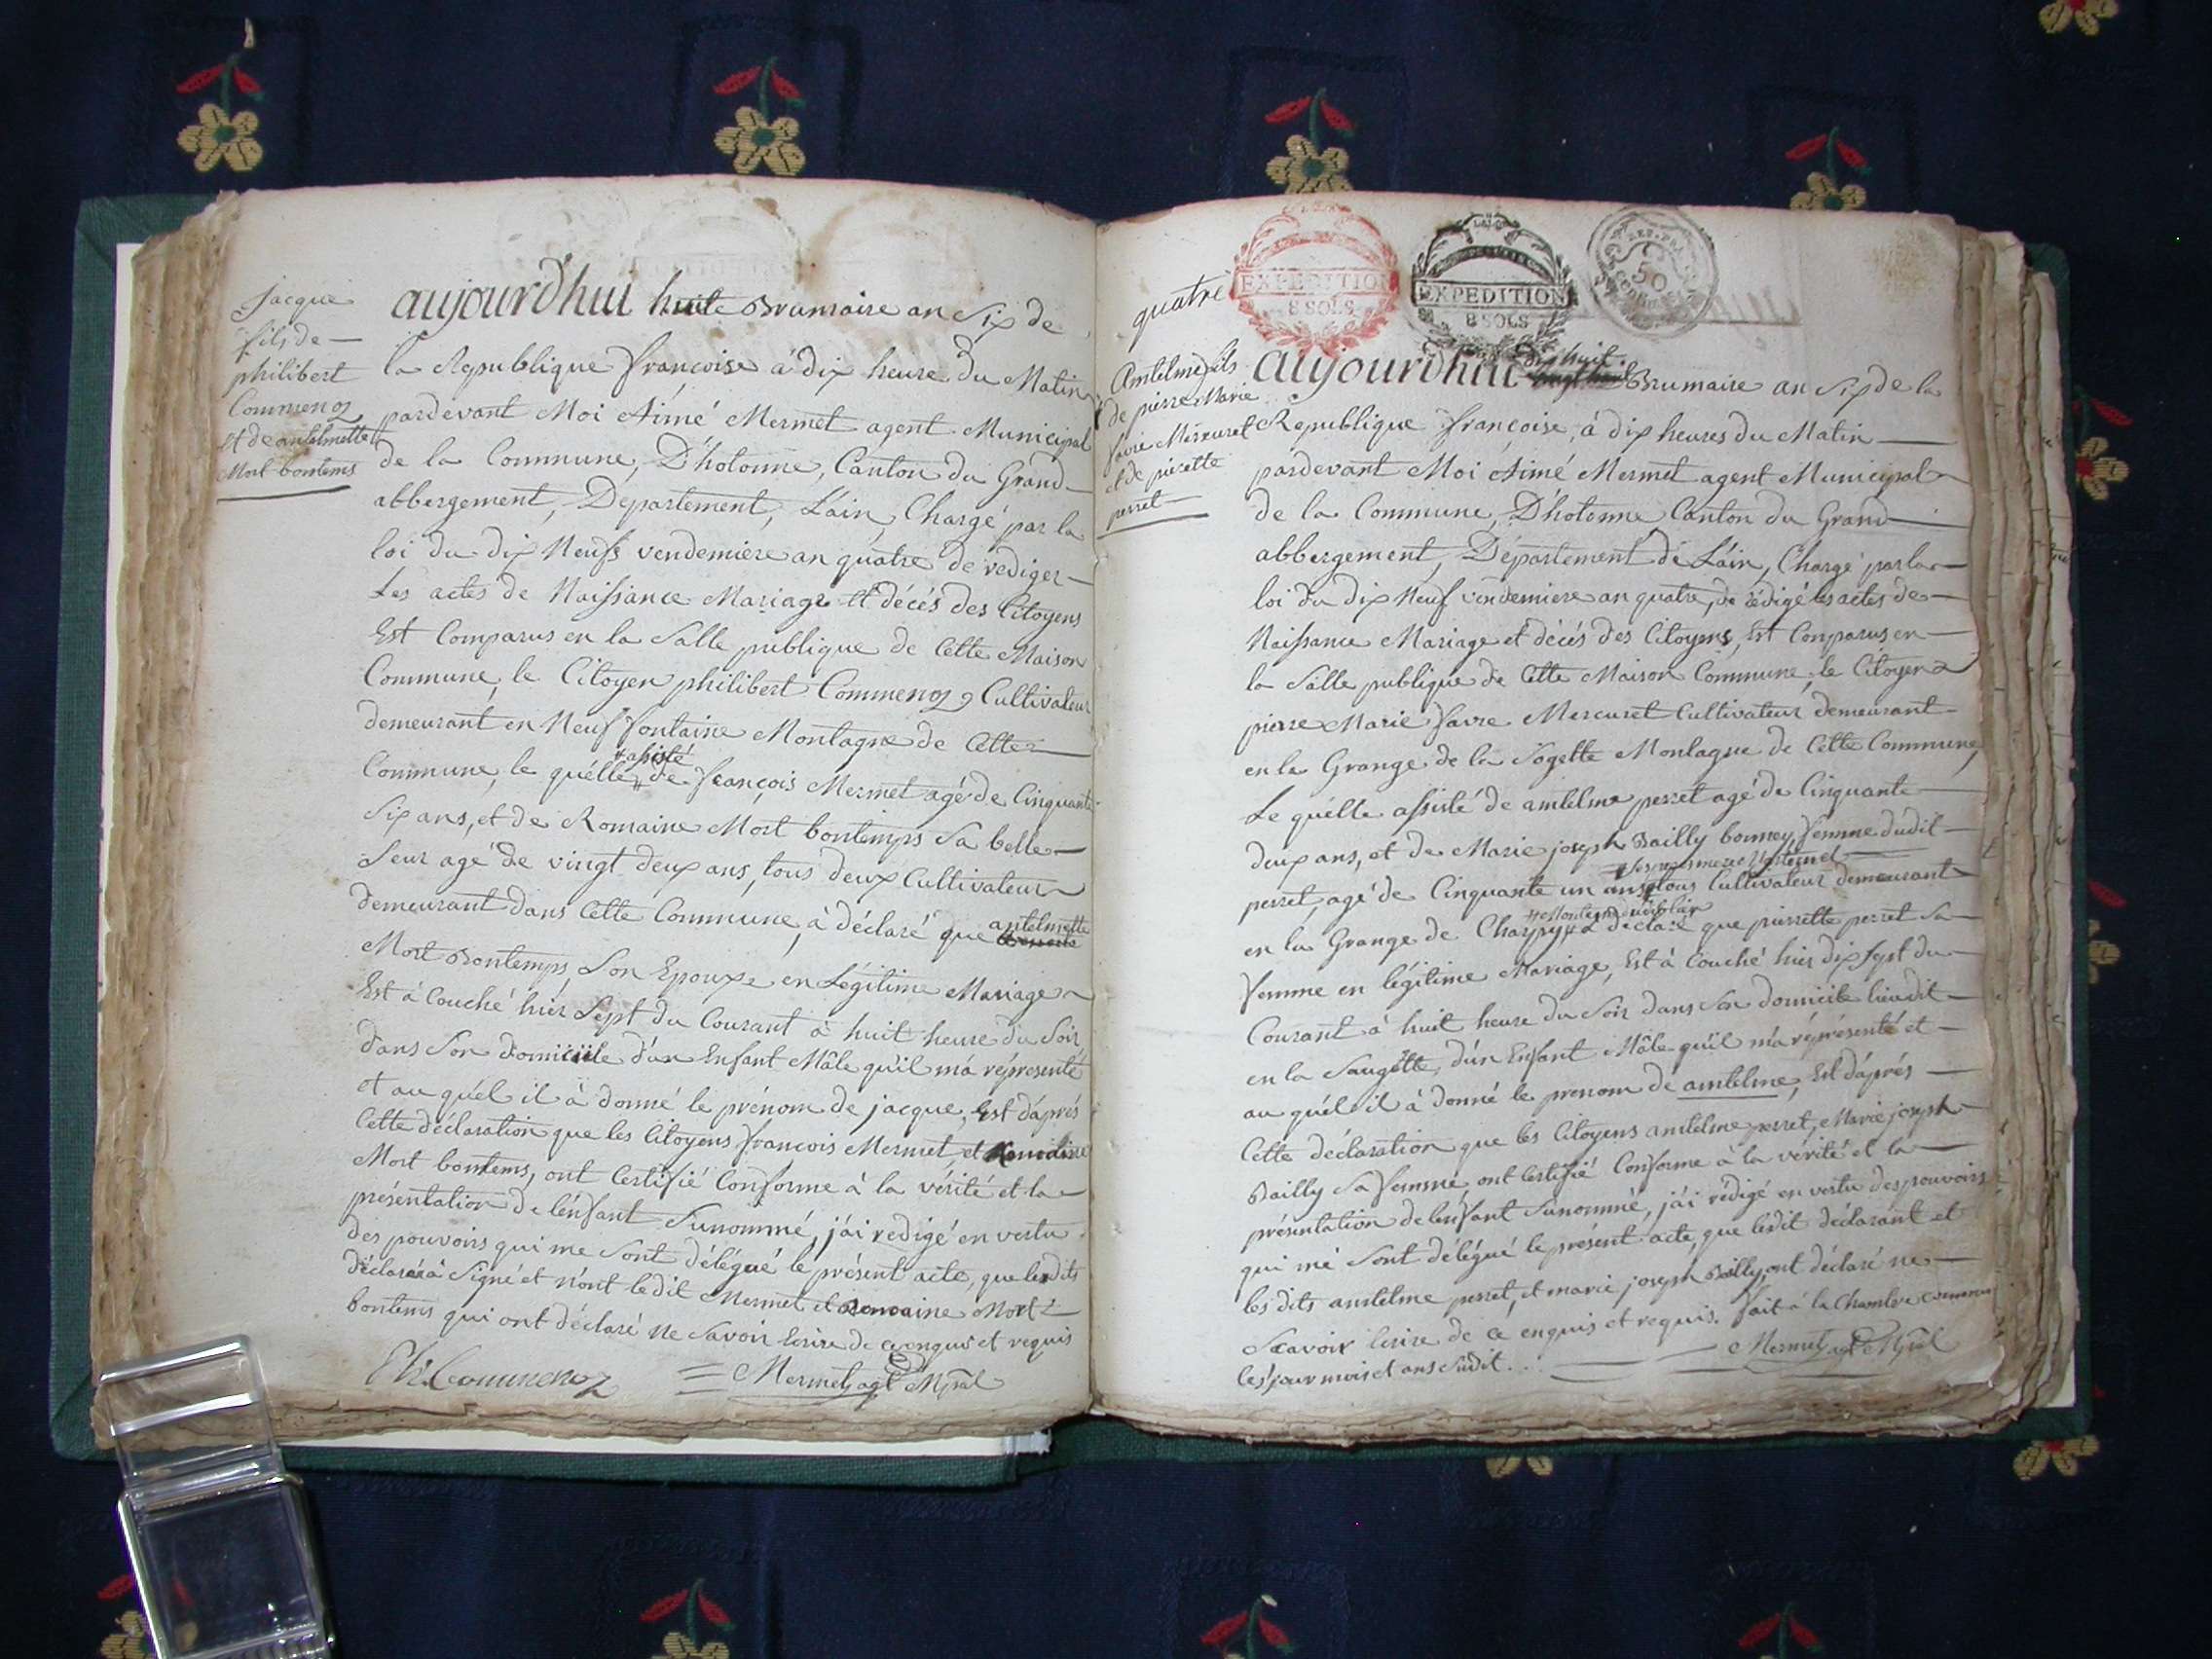 Jacque
fils de
philibert
Commenoz
et de antelmette
Mort bontems
aujourd'hui huite Brumaire an Six de
la Republique françoise à dix heure du Matin
pardevant Moi Aimé Mermet agent Municipal
de la Commune, D'hotonne, Canton du Grand
abbergement, Departement, L'ain, Chargé par la
loi du dix Neufs vendemiere an quatre de rediger
Les actes de Naissance Mariage et décés des Citoyens
Est Comparus en la Salle publique de Cette Maison
Commune, le Citoyen philibert Commenoz, Cultivateur
demeurant en Neuf fontaine Montagne de Cette
Commune, le quélle assisté de françois Mermet agé de Cinquante
Six ans, et de Romaine Mort bontemps Sa belle
Seur agé de vingt deux ans, tous deux Cultivateur
demeurant dans Cette Commune, à déclaré que antelmette
Mort Bontemps, Son Epouxe en Légitime Mariage
Est à Couché hier Sept du Courant à huit heure du Soir
dans Son domicile d'un Enfant Mâle qu'il má répresenté
et au quél il à donné le prénom de jacque, Est d'aprés
Cette déclaration que les Citoyens françois Mermet, et Romaine
Mort bontems, ont Certifié Conforme à la vérité et la
présentation de l'énfant Sunommé, j'ái redigé en vertu
des pouvoirs qui me Sont délégué le présent acte, que lesdits
déclaré à Signé et n'ont ledit Mermet et Romaine Mort
bontems qui ont déclaré ne Savoir Ecrire de ce enquis et requis
Ph. Commenoz Mermet agt Mpal
quatre
EXPEDITION
8 SOLS
EXPEDITION
8 SOLS
REP. FRA
50
Centimes
Antelme fils
de pierre Marie
favre Mercuret
et de pierette
perret
aujourd'hui dix huit Brumaire an Six de la
Republique françoise, à dix heures du Matin
pardevant Moi Aimé Mermet agent Municipal
de la Commune, D'hotonne Canton du Grand
abbergement, Département de L'áin, Chargé par la
loi du dix Neuf vendemiere an quatre, de rédigé les actes de
Naissance Mariage et décés des Citoyens, Est Comparus en
la Salle publique de Cette Maison Commune, le Citoyen
pierre Marie favre Mercuret Cultivateur demeurant
en la Grange de la Sogette Montagne de Cette Commune,
Le quélle assisté de antelme perret agé de Cinquante
deux ans, et de Marie joseph Bailly bonney, femme dudit
perret, agé de Cinquante un ans tous Cultivateur demeurant
en la Grange de Charpy à déclaré que pierrette perret Sa
femme en légitime Mariage, Est à Couché hier dix Sept du
Courant à huit heure du Soir dans Son domicile lieu dit
en la Saugétte, d'un Enfant Mâle qu'il má réprésenté et
au quél il à donné le prenom de antelme, Est d'áprés
Cette déclaration que les Citoyens antelme perret, Marie joseph
Bailly Sa femme ont Certifié Conforme à la vérité et la
présentation de lénfant Sunommé, j'ái rédigé en vertu des pouvoirs
qui mé Sont délégué le présent acte, que ledit déclarant et
les dits antelme perret, et marie joseph Bailly, ont déclaré ne
Scavoir Ecrire de ce enquis et requis. fait à la Chambre Commune
les jour mois et ans Sudit. Mermet agt Mpal